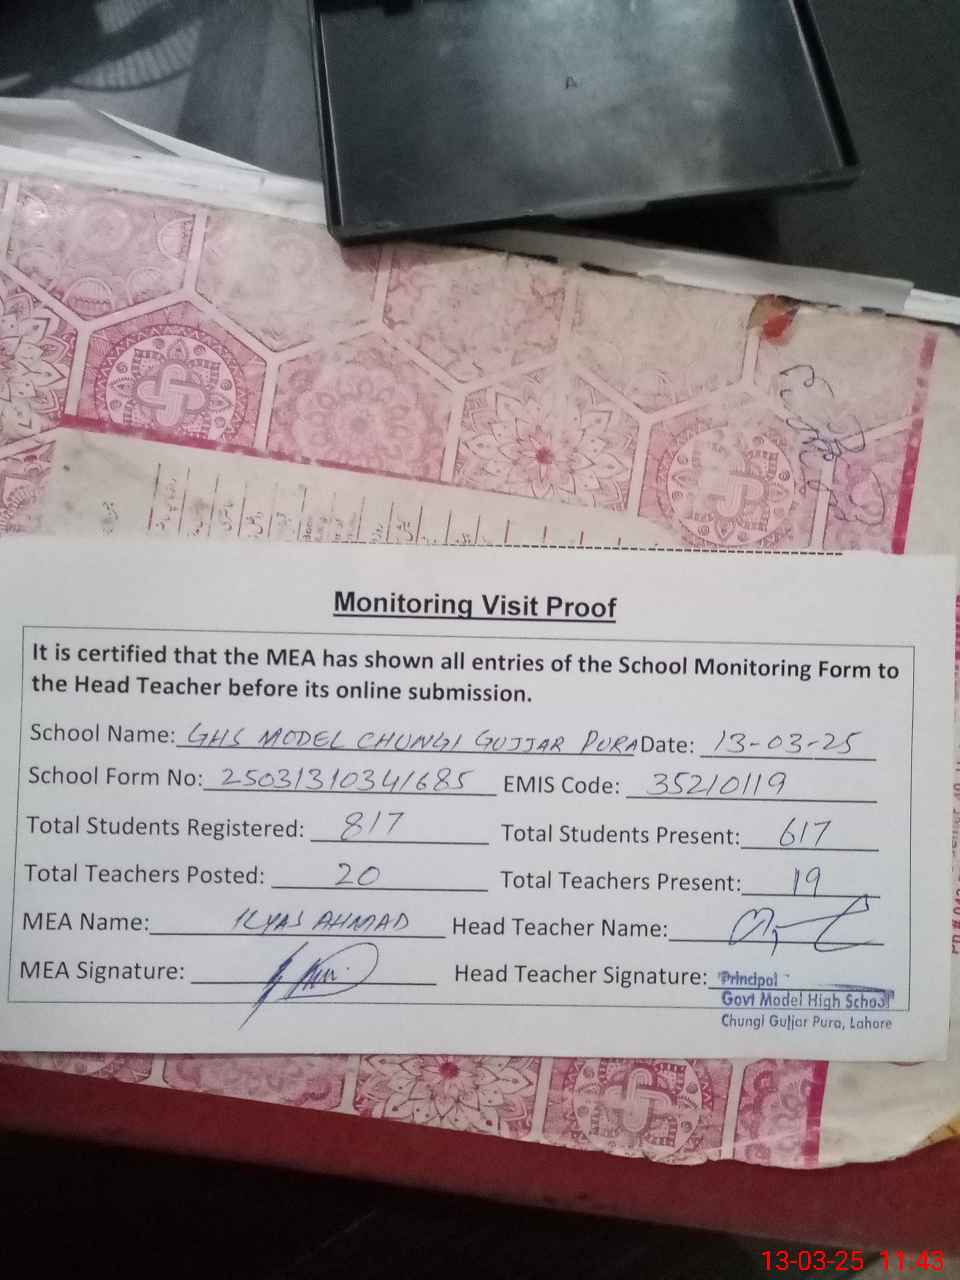 A
Monitoring Visit Proof
It is certified that the MEA has shown all entries of the School Monitoring Form to
the Head Teacher before its online submission.
School Name: GHS MODEL CHUNGI GUJJAR PURA Date: 13-03-25
School Form No: 25031310341685 EMIS Code: 35210119
Total Students Registered: 817 Total Students Present: 617
Total Teachers Posted: 20 Total Teachers Present: 19
MEA Name: ILYAS AHMAD Head Teacher Name:
MEA Signature: Head Teacher Signature: Principal
Govt Model High School
Chungi Gujjar Pura, Lahore
13-03-25 11:43